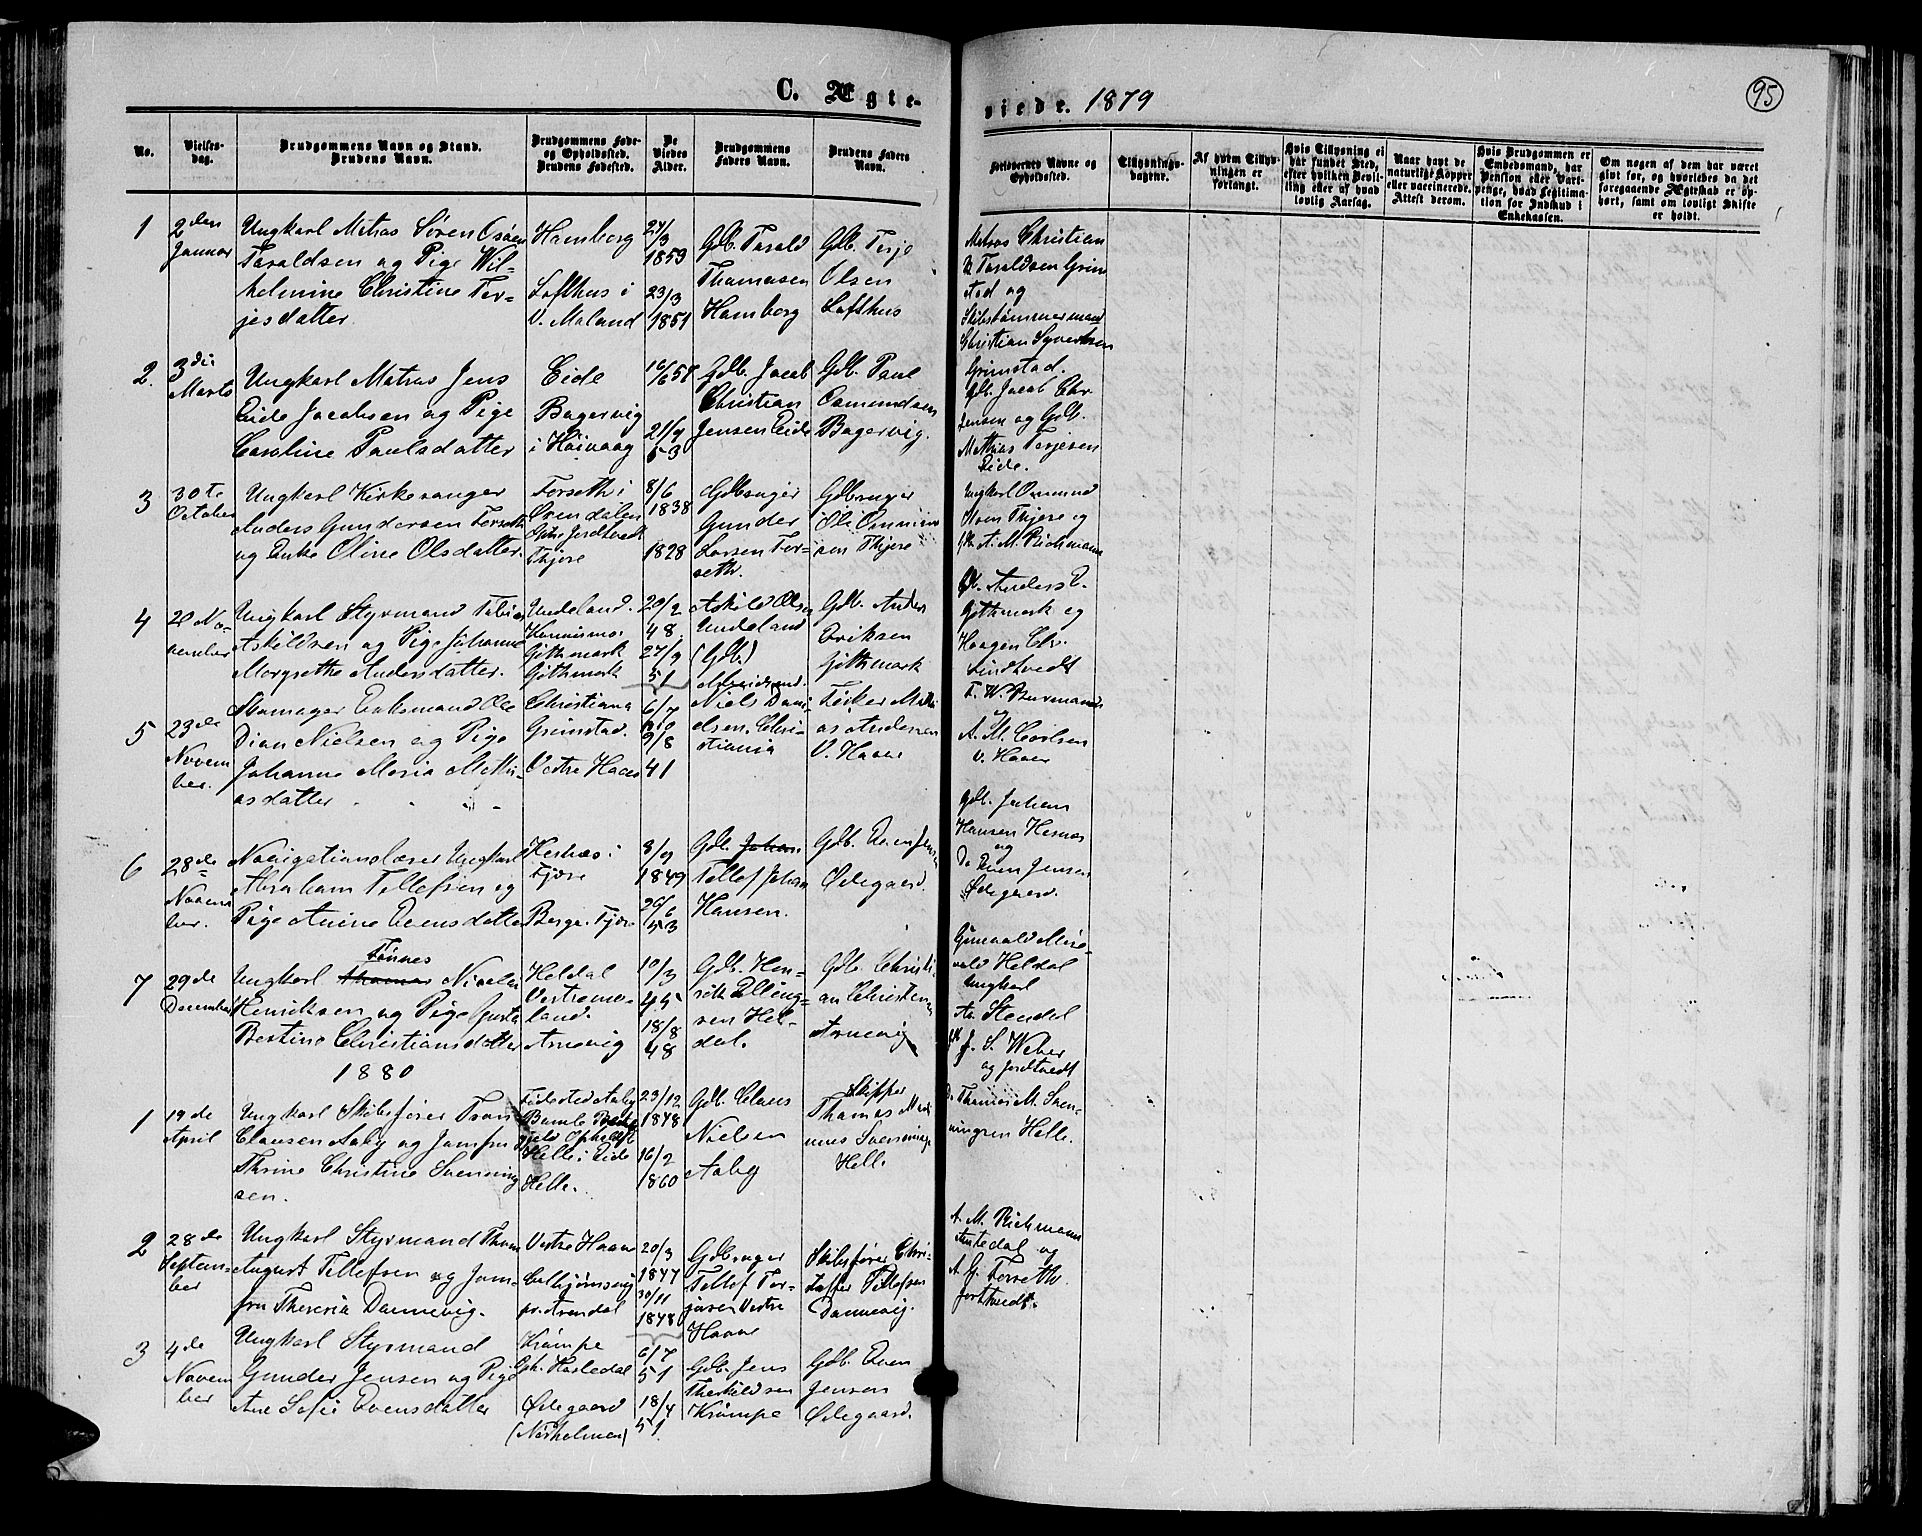 C. Ægte-
viede. 1879
95
No.
Vielses-
dag.
Brudgommens Navn og Stand.
Brudens Navn.
Brudgommens Føde-
og Opholdssted.
Brudens Fødested.
De
Viedes
Alder.
Brudgommens
Faders Navn.
Brudens Faders
Navn.
Forlovernes Navne og
Opholdssted.
Tillysnings-
dagene.
Af hvem Tillys-
ningen er
forlangt.
Hvis Tillysning ei
har fundet Sted,
efter hvilken Bevil-
ling eller af hvad
lovlig Aarsag.
Naar havt de
naturlige Kopper
eller vaccinerede.
Attest derom.
Hvis Brudgommen er
Embedsmand, har
Pension eller Vart-
penge, hvad Legitima-
tion for Indskud i
Enkekassen.
Om nogen af dem har været
gift før, og hvorledes da det
foregaaende Ægteskab er op-
hørt, samt om lovligt Skifte
er holdt.
1
2den
Januar
Ungkarl Matros Søren Osåen
Taraldsen og Pige Wil-
helmine Christine Ter-
jesdatter
Hamborg
Lofthus i
V. Moland
24/3
1859
23/3
1851
Gdb. Tarald
Thomasen
Hamborg
Gdb. Terje
Olsen
Lofthus
Matros Christian
Taraldsen Grim
stad og
Skibstømmermand
Christian Syvertsen
Grimstad.
2.
3die
Marts
Ungkarl Matros Jens
Eide Jacobsen og Pige
Caroline Paulsdatter
Eide
Bagervig
i Høivaag
10/6 57
21/9
53
Gdb. Jacob
Christian
Jensen Eide
Gdb. Paul
Osmundsen
Bagervig.
Gdb. Jacob Chr.
Jensen og Gdb.
Mathias Terjesen
Eide.
3
30te
October
Ungkarl Kirkesanger
Anders Gundersen Forseth
og Enke Oline Olsdatter.
Forseth i
Evendalen
Oph. Jordtvedt
Fjære
8/6
1838
1828
Gdbruger
Gunder
Larsen For-
seth.
Gdbruger
Ole Omun
sen Fjære
Ungkarl Osmund
Olsen Fjære og
A. M. Richmann
4
20 No-
vember
Ungkarl Styrmand Tobias
Askildsen og Pige Johanne
Margrethe Andersdatter.
Undeland.
Gothmark
Gothmark
20/2
48
27/9
51
Askild Olsen
Undeland
(Gdb.)
Gdb. Anders
Eriksen
Gothmark
Gdb. Anders E.
Gothmark og
Haagen Chr.
Lindtvedt
5
23de
Novem
ber.
Skomager Enkemand Ole
Dian Nielsen og Pige
Johanne Maria Mathi-
asdatter
Christiania
Grimstad.
Vestre Haaø
6/7
9/8
41
Niels Dani-
elsen Chri-
stiania
Fisker Mathi
as Andersen
V. Haaø
A. M. Carlsen
V. Haaø
6
28de
Novem
ber.
Navigationslærer Ungkarl
Abraham Tellefsen og
Pige Anine Evensdatter
Hesnæs i
Fjære
Berge Fjære
8/9
1849
26/6
53
Gdb. Johan
Tellef Johan
Hansen.
Gdb. Even Jensen
Ødegaard
Gdb. Johan
Hansen Hesnæs
og
Do Even Jensen
Ødegaard.
7
29de
December
Tønnes
Ungkarl Thomas Nicolai
Henriksen og Pige Gusta
Bertine Christiansdatter
Heldal
Vestremo-
land.
Arnevig
10/3
45
18/8
48
Gdb. Hen-
rik Elling-
sen Hel-
dal.
Gdb. Christi
an Christensen
Arnevig
Heldal
Ungkarl
As. Stendal
J. S. Weber
og Jordtvedt
1880
1
19de
April
Ungkarl Skibsfører Tron
Clausen Aaby og Jomfru
Thrine Christine Svenning
sen.
Fødested Aaby
Bamle Præste
gjeld Opholdst.
Helle i Eide
Helle.
23/12
1848
16/2
1860
Gdb. Claus
Nielsen
Aaby
Skipper
Thomas Mag
nus Svenningsen
Helle
Thomas M. Sven-
ningsen Helle.
2
28de
Septem-
ber
Ungkarl Styrmand Thom
August Tellefsen og Jom-
fru Theresia Dannevig.
Vestre Haaø
Colbjørnsvig
pr. Arendal
20/3
1847
30/11
1848
Gdbruger
Tellef Ter-
jesen Vestre
Haaø
Skibsfører Chri-
stoffer Tellefsen
Dannevig.
A. M. Richmann
og
A. G. Forseth
Jortveidt.
3
4de
Novem
ber
Ungkarl Styrmand
Gunder Jensen og Pige
Ane Sofie Evensdatter
Krømpe
Oph. Hasledal
Ødegaard
6/7
51
18/4
51
Gdb. Jens
Therkildsen
Krømpe
Gdb. Even
Jensen
Ødegaard.